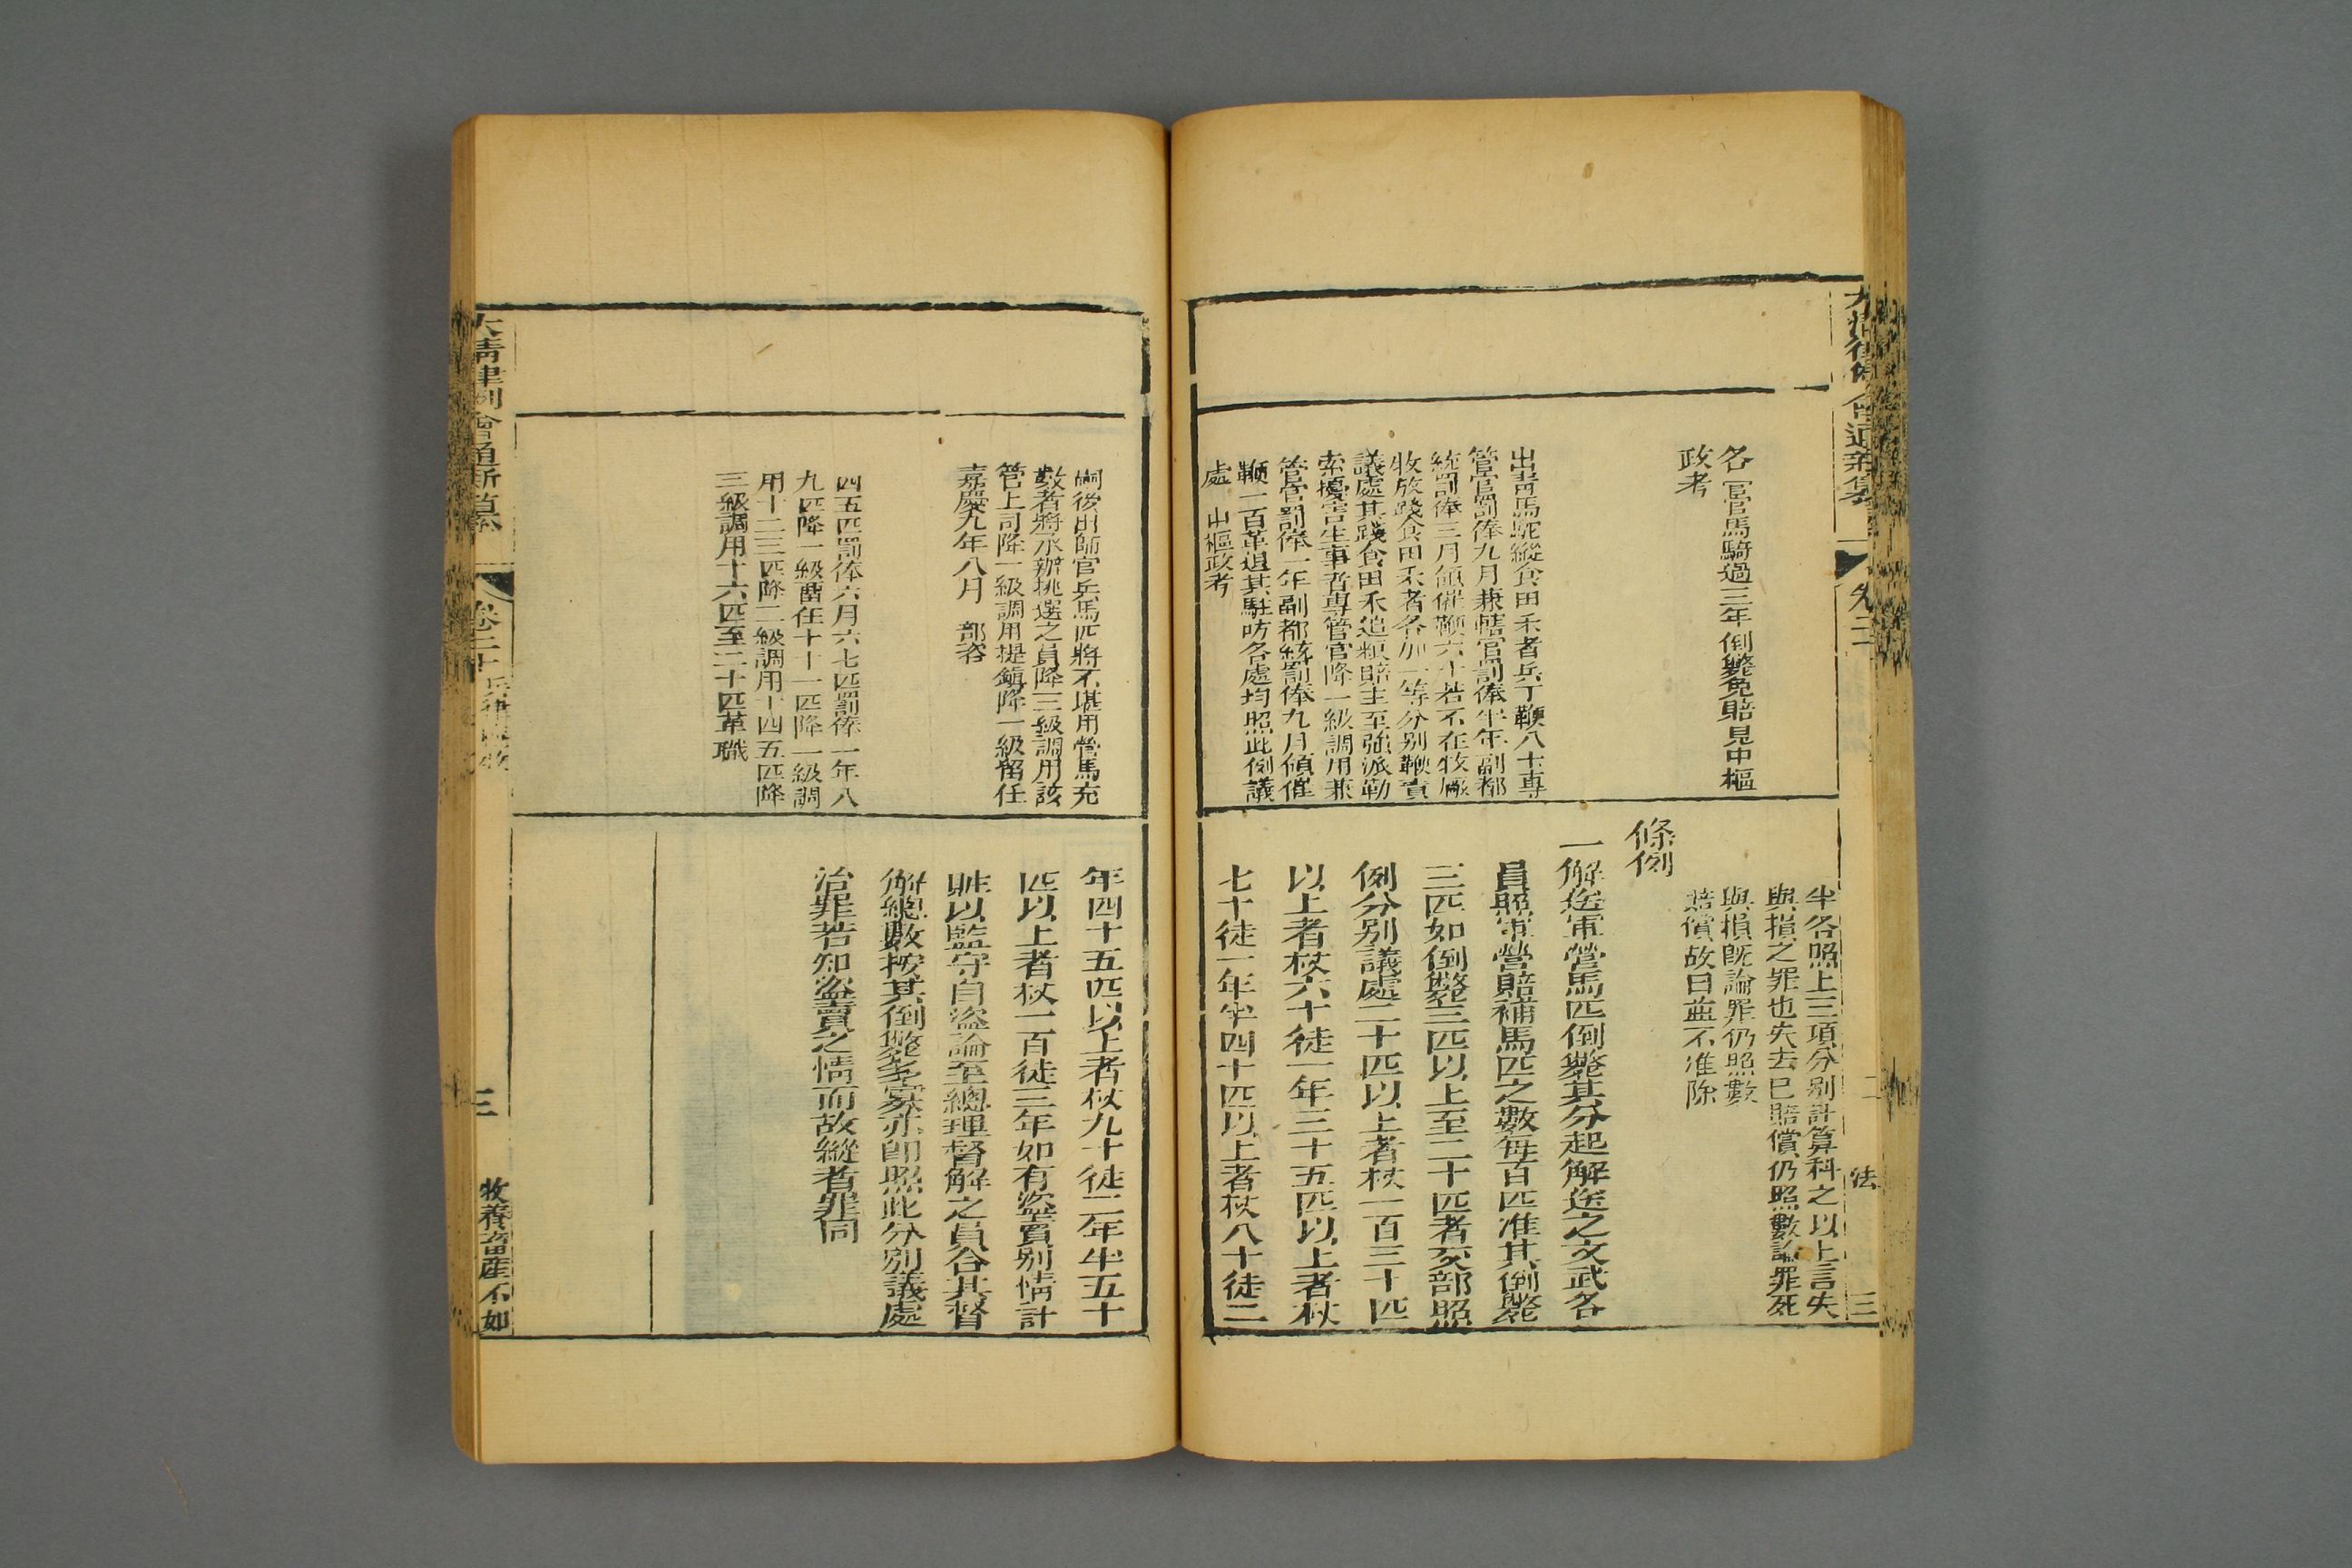 各官馬騎過三年倒斃免賠見中樞
政考
出青馬駝縱食田禾者兵丁鞭八十專
管官罰俸九月兼轄官罰俸半年副都
統罰俸三月傾催鞭六十若不在牧厰
牧放踐食田禾者各加一等分別鞭責
議處其踐食田禾追糧賠主至強派勒
索擾害生事者專管官降一級調用兼
管官罰俸一年副都統罰俸九月傾催
鞭一百革退其駐防各處均照此例議
處 出樞政考
半各照上三項分别計算科之以上言失
與損之罪也失去已賠償仍照數論罪死
與損旣論罪仍照數
賠償故日並不准除
條例
一解送軍營馬匹倒斃其分起解送之文武各
員照軍營賠補馬匹之數每百匹准其倒斃
三匹如倒斃三匹以上至二十匹者交部照
例分别議處二十匹以上者杖一百三十匹
以上者杖六十徒一年三十五匹以上者杖
七十徒一年半四十匹以上者杖八十徒二
法
三
嗣後出師官兵馬匹將不堪用營馬充
數者將承辦挑選之員降三級調用該
管上司降一級調用提鎮降一級留任
嘉慶九年八月 部咨
四五匹罰俸六月六七匹罰俸一年八
九匹降一級畱任十十一匹降一級調
用十二三匹降二級調用十四五匹降
三級調用十六匹至二十匹革職
年四十五匹以上者杖九十徒二年半五十
匹以上者杖一百徒三年如有盜賣别情計
賍以監守自盜論至總理督解之員合其督
解總數按其倒斃多寡亦卽照此分别議處
治罪若知盜賣之情而故縱者罪同
大清律例會通新纂
卷二十
三
牧養畜產不如